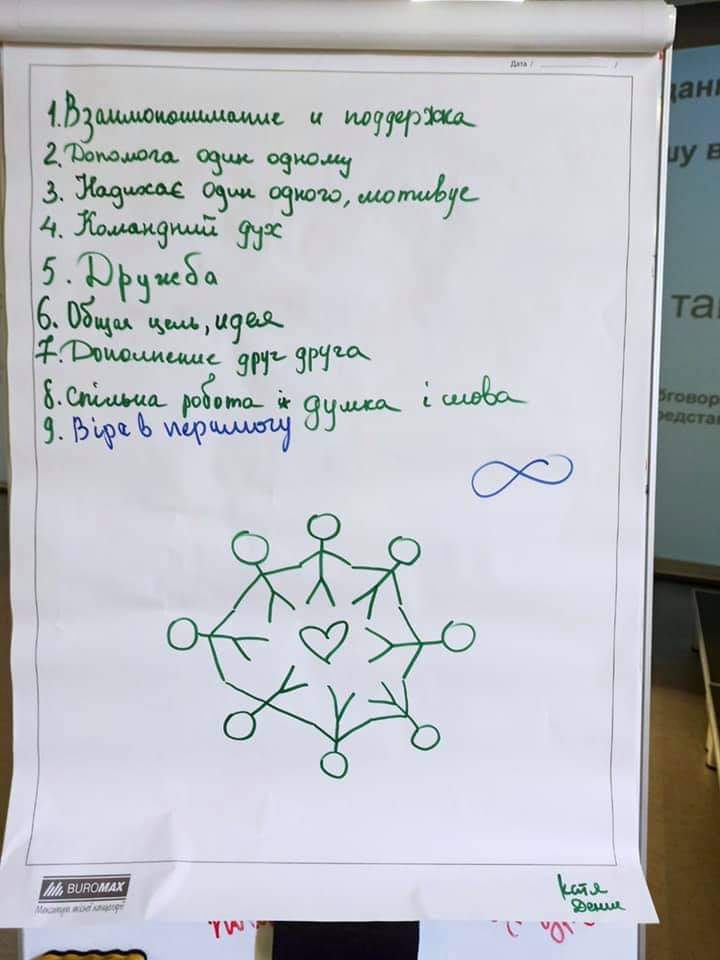 Дата / /
1. Взаимопонимание и поддержка
2. Допомога один одному
3. Надихає один одного, мотивує
4. Командний дух
5. Дружба
6. Общая цель, идея
7. Дополнение друг друга
8. Спільна робота і думка і слова
9. Віра в перимогу
BUROMAX
Катя
Денис
дані
шу в
та
бговор
редста